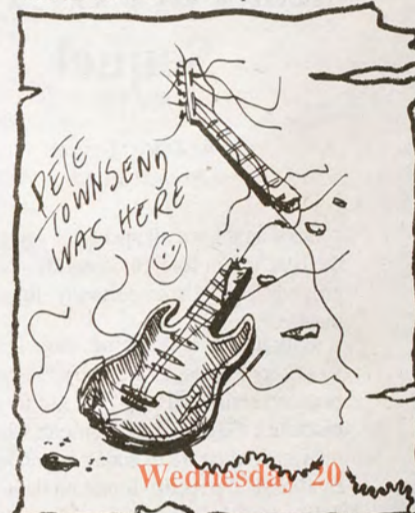 PETE
TOWNSEND
WAS HERE
Wednesday 20